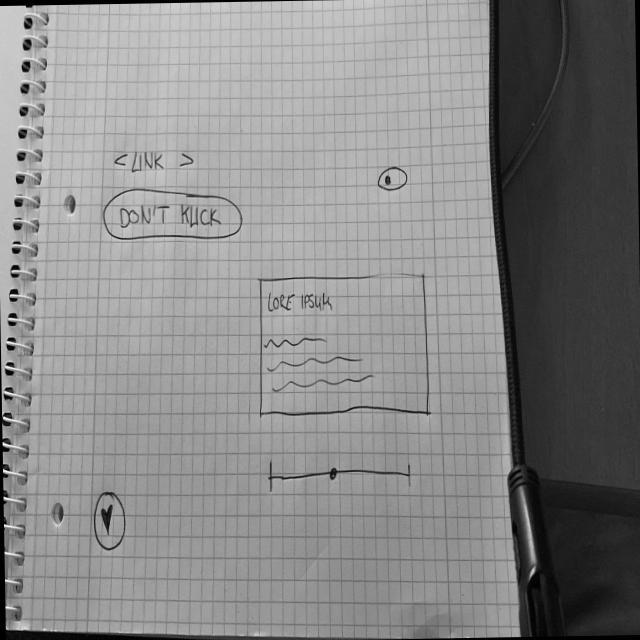 < LINK >
DON'T KLICK
LORE IPSUM